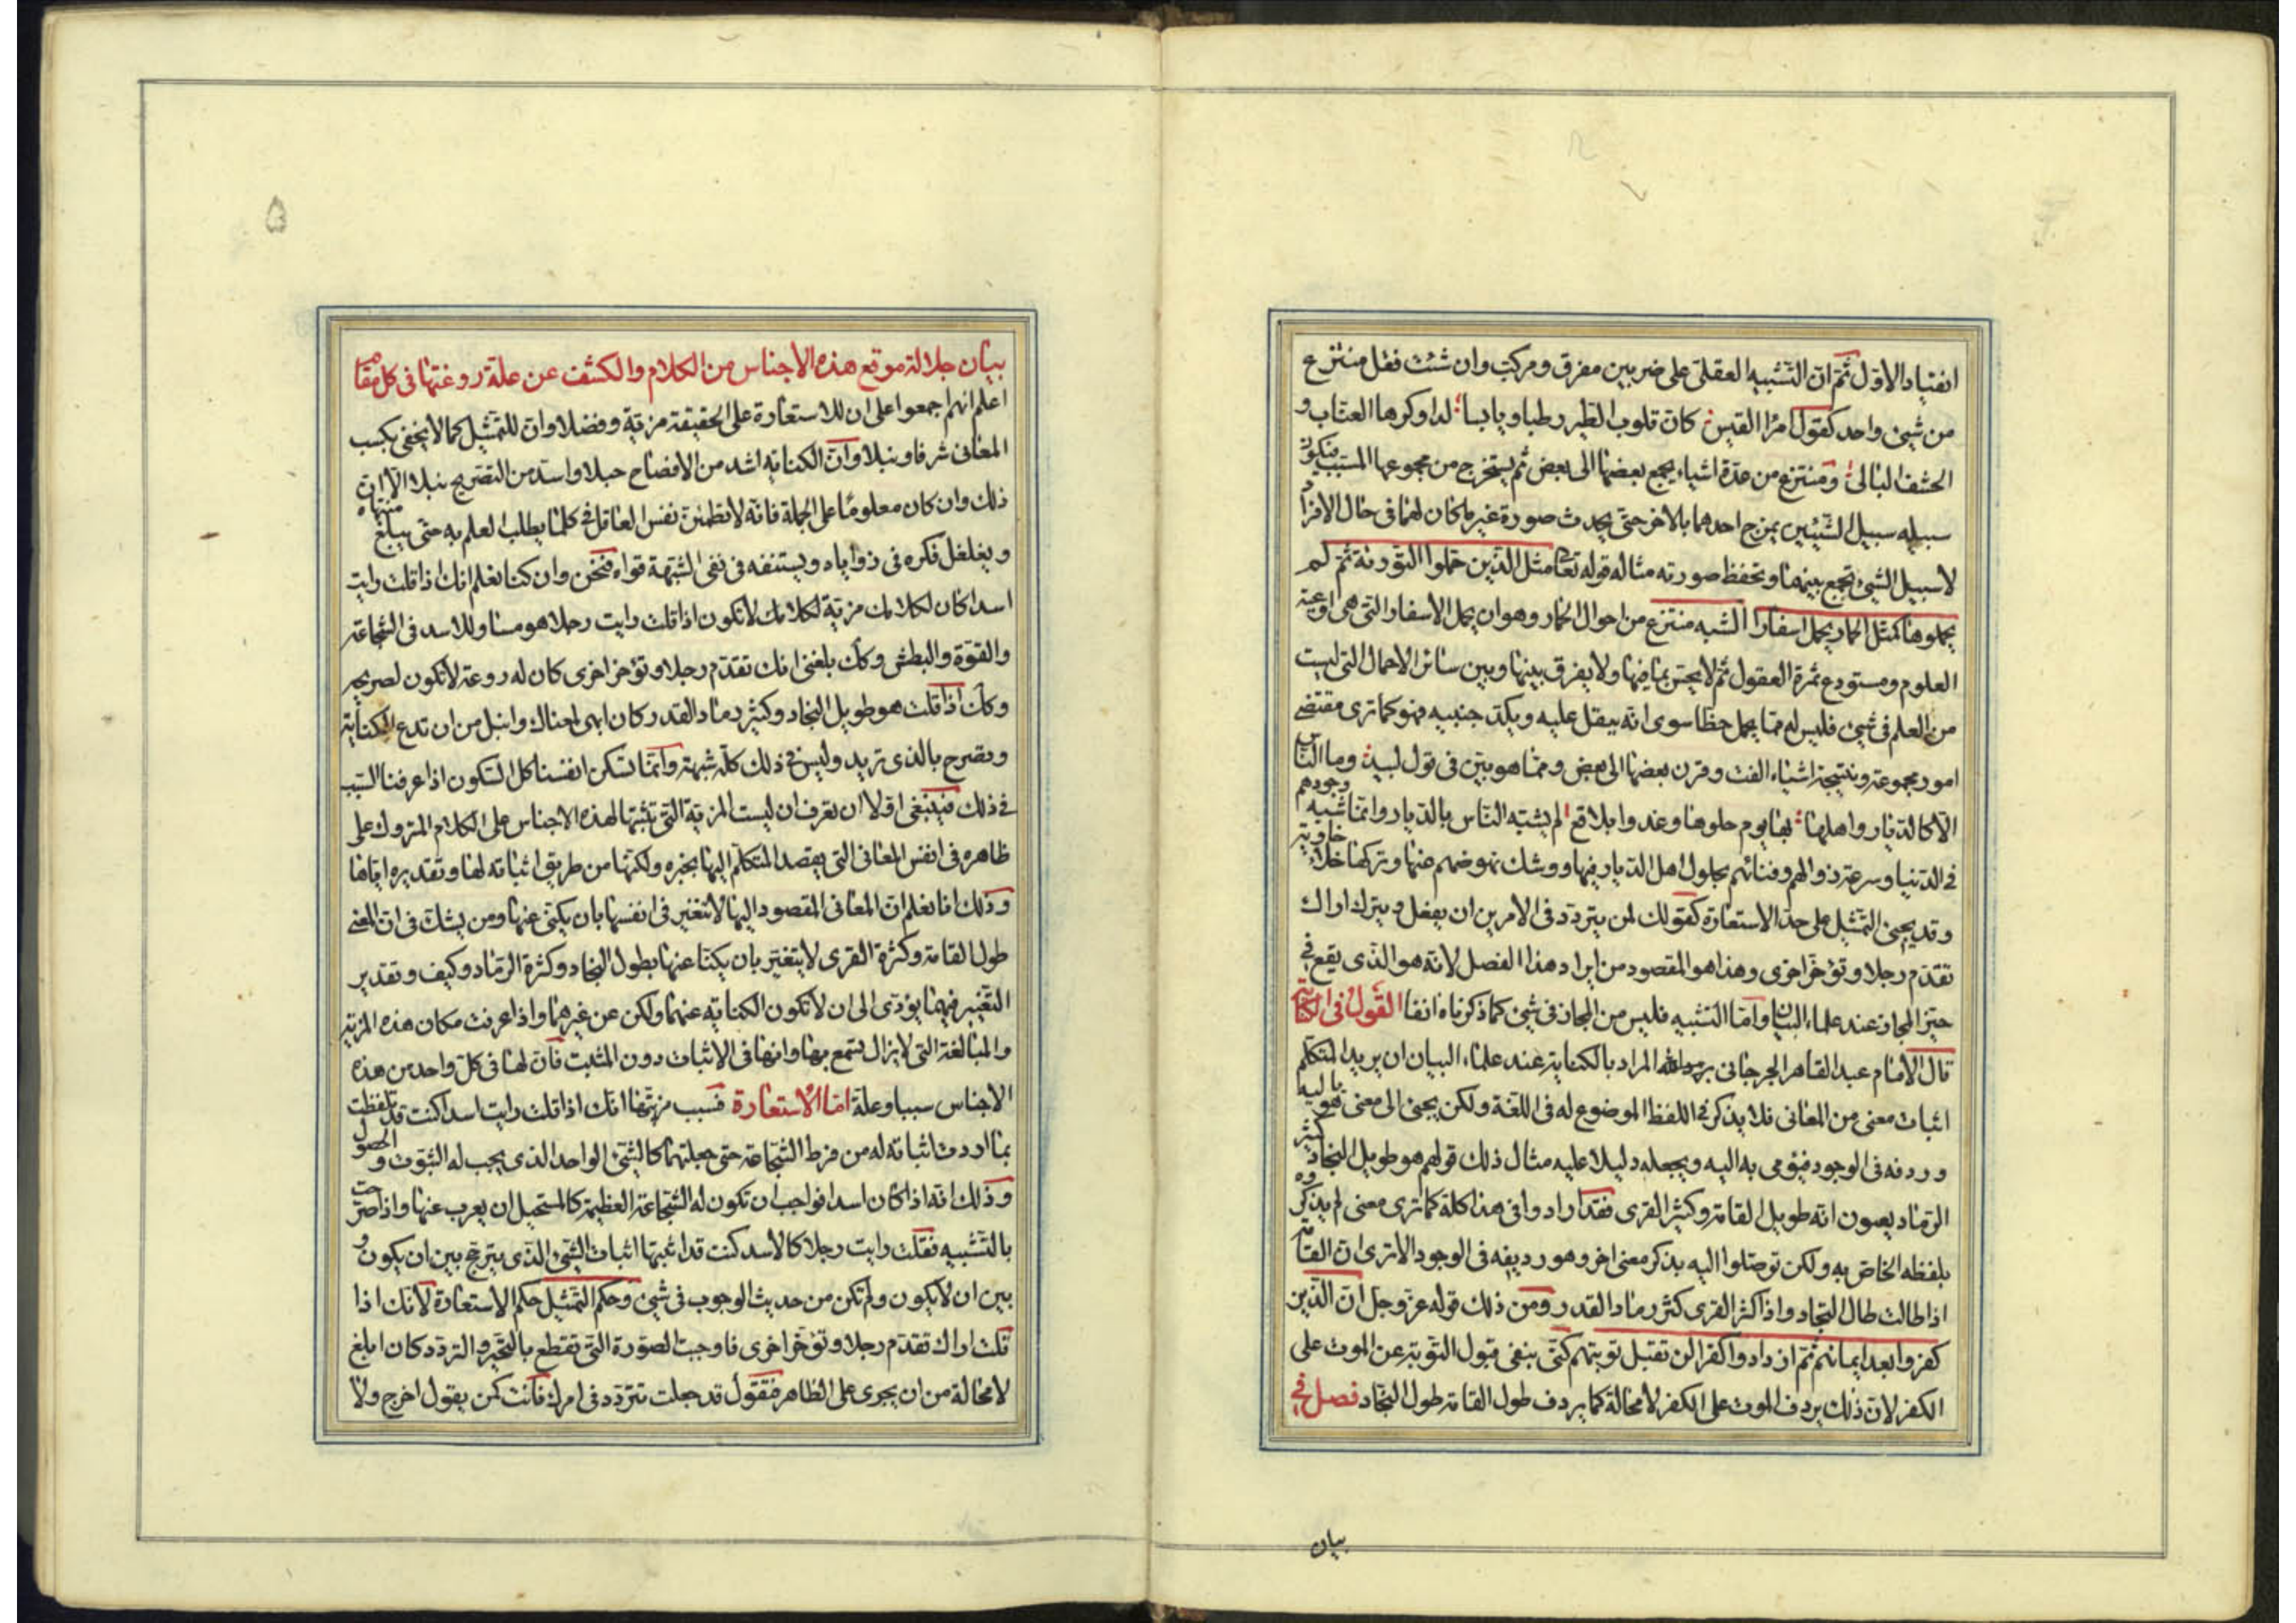 انقياد الاول ثم ان التشبيه العقلى على ضربين مفرق ومركب وان شئت فقل منتزع
من شيئ واحد كقول امرا القيس كان قلوب الطير رطبا ويابسا لدا وكرها العناب و
الحشف البالى ومنتزع من عدة اشياء يجمع بعضها الى بعض ثم يستخرج من مجموعها المسبب فيكون
سبيله سبيل الشيئين يمزج احدهما بالاخر حتى يحدث صورة غير ما كان لهما فى حال الافراد
لا سبيل الشيئ تجمع بينهما وتحفظ صورته مثاله قوله تعا مثل الذين حملوا التورية ثم لم
يحملوها كمثل الحمار يحمل اسفارا الشبه منتزع من احوال الحمار وهو ان يحمل الاسفار التى هى اوعية
العلوم ومستودع ثمرة العقول ثم لا يحس بما فيها ولا يفرق بينها وبين سائر الاحمال التى ليست
من العلم فى شيئ فليس له مما يحمل حظا سوى انه يثقل عليه ويكد جنبيه فهو كما ترى مقتضى
امور مجموعة ونتيجة اشياء الفت وقرن بعضها الى بعض ومما هو بين فى قول لبيد وما الناس
الا كالديار واهلها بها يوم حلوها وغدوا بلاقع لم يشبه الناس بالديار وانما شبه وجودهم
فى الدنيا وسرعة زوالهم وفنائهم بحلول اهل الديار فيها ووشك نهوضهم عنها وتركها خلاء خاوية
وقد يجيئ التمثيل على حد الاستعارة كقولك لمن يتردد فى الامرين ان يفعل ويترك اراك
تقدم رجلا وتؤخر اخرى وهذا هو المقصود من ايراد هذا الفصل لانه هو الذى يقع فى
حيز المجاز عند علماء البيان واما التشبيه فليس من المجاز فى شيئ كما ذكرناه انفا القول فى الكناية
قال الامام عبد القاهر الجرجانى المراد بالكناية عند علماء البيان ان يريد المتكلم
اثبات معنى من المعانى فلا يذكر فى اللفظ الموضوع له فى اللغة ولكن يجيئ الى معنى هو تاليه
وردفه فى الوجود فيؤمى به اليه ويجعله دليلا عليه مثال ذلك قولهم هو طويل النجاد كثير
الرماد يعنون انه طويل القامة وكثير القرى فقد ارادوا فى هذا كله كما ترى معنى لم يذكروه
بلفظه الخاص به ولكن توصلوا اليه بذكر معنى اخر وهو رديفه فى الوجود الا ترى ان القامة
اذا طالت طال النجاد واذا كثر القرى كثر رماد القدر ومن ذلك قوله عز وجل ان الذين
كفروا بعد ايمانهم ثم ازدادوا كفرا لن تقبل توبتهم كنى بنفى قبول التوبة عن الموت على
الكفر لان ذلك يردف الموت على الكفر لا محالة كما يردف طول القامة طول النجاد فصل فى
بيان
۵
بيان جلالة موقع هذه الاجناس من الكلام والكشف عن علة روعتها فى كل مقام
اعلم انهم اجمعوا على ان للاستعارة على الحقيقة مزية وفضلا وان للتمثيل كما لا يخفى يكسب
المعانى شرفا ونبلا وان الكناية اشد من الافصاح حبلا واسد من التصريح نبلا الا ان
ذلك وان كان معلوما على الجملة فانه لا تطمئن نفس العاقل فى كلما يطلب العلم به حتى يبلغ منتهاه
ويغلغل فكره فى زواياه ويستنفه فى نفى الشبهة قواه فنحن وان كنا نعلم انك اذا قلت رايت
اسدا كان لكلامك مزية لكلامك لا تكون اذا قلت رايت رجلا هو مساو للاسد فى الشجاعة
والقوة والبطش وكك بلغنى انك تقدم رجلا وتؤخر اخرى كان له روعة لا تكون لصريحه
وكك اذا قلت هو طويل النجاد وكثير رماد القدر كان ابهى لمعناك وانبل من ان تدع الكناية
وتصرح بالذى تريد وليس فى ذلك كله شبهة وانما تسكن انفسنا كل السكون اذا عرفنا السبب
فى ذلك فينبغى اولا ان نعرف ان ليست المزية التى تثبتها لهذه الاجناس على الكلام المتروك على
ظاهره فى انفس المعانى التى يقصد المتكلم اليها بخبره ولكنها من طريق اثباته لها وتقديره اياها
وذلك انا نعلم ان المعانى المقصود اليها لا تتغير فى انفسها بان يكنى عنها ومن يشك فى ان المعنى
طول القامة وكثرة القرى لا يتغير بان يكنا عنها بطول النجاد وكثرة الرماد وكيف وتقدير
التغيير فيهما يؤدى الى ان لا تكون الكناية عنهما ولكن عن غيرهما واذا عرفت مكان هذه المزية
والمبالغة التى لا يزال يستمع بها وانها فى الاثبات دون المثبت فان لها فى كل واحد من هذه
الاجناس سببا وعلة اما الاستعارة فسبب مزيتها انك اذا قلت رايت اسدا كنت قد تلفظت
بما اردت اثباته له من فرط الشجاعة حتى جعلتها كالشيئ الواحد الذى يجب له الثبوت والحصول
وذلك انه اذا كان اسدا فواجب ان تكون له الشجاعة العظيمة كالمستحيل ان يعرب عنها واذا صرحت
بالتشبيه فقلت رايت رجلا كالاسد كنت قد اثبتها اثبات الشيئ الذى يترجح بين ان يكون و
بين ان لا يكون ولم تكن من حديث الوجوب فى شيئ وحكم التمثيل حكم الاستعارة لانك اذا
قلت اراك تقدم رجلا وتؤخر اخرى فاوجبت الصورة التى تقطع بالتحير والتردد كان ابلغ
لا محالة من ان يجرى على الظاهر فتقول قد جعلت تتردد فى امرك فانت كمن يقول اخرج ولا